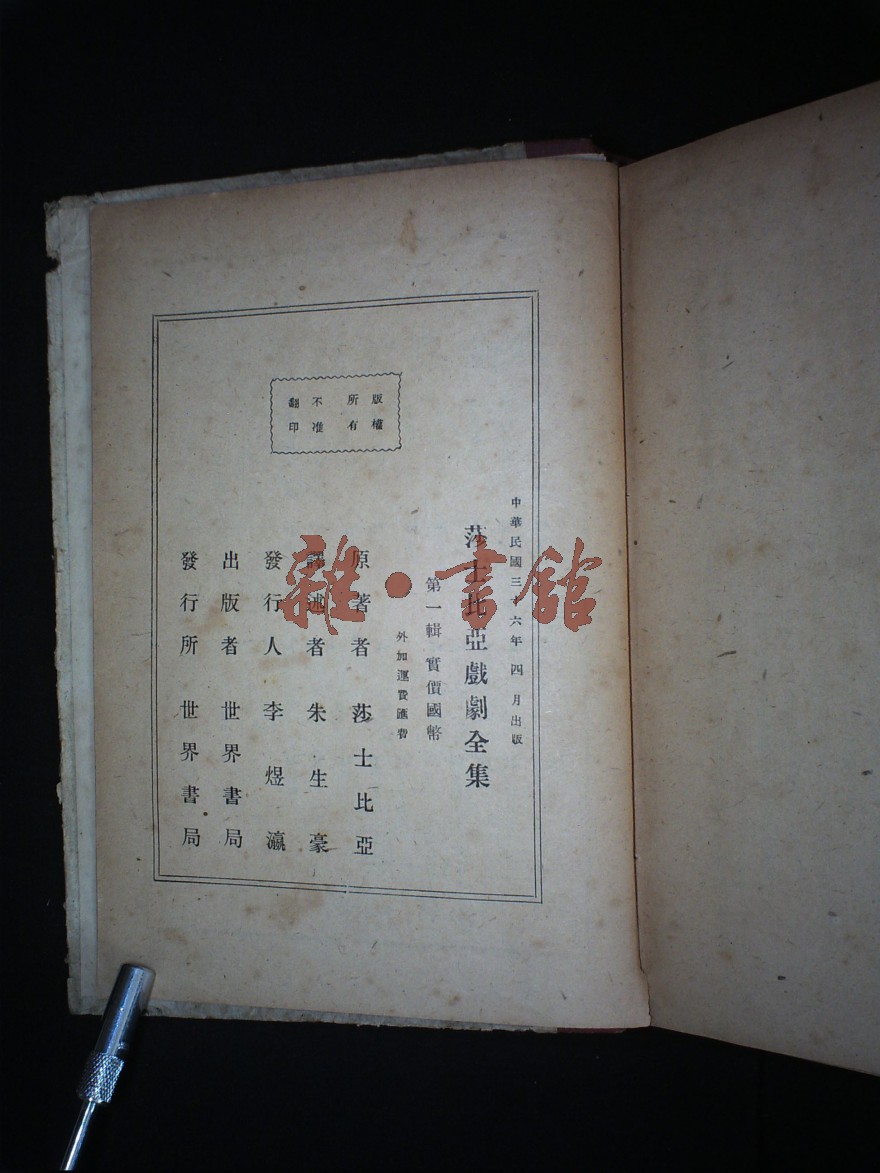 版權
所有
不准
翻印
中華民國三十六年四月出版
莎士比亞戲劇全集
第一輯 實價國幣
外加運費匯費
原著者 莎士比亞
譯述者 朱生豪
發行人 李煜瀛
出版者 世界書局
發行所 世界書局
雜·書館